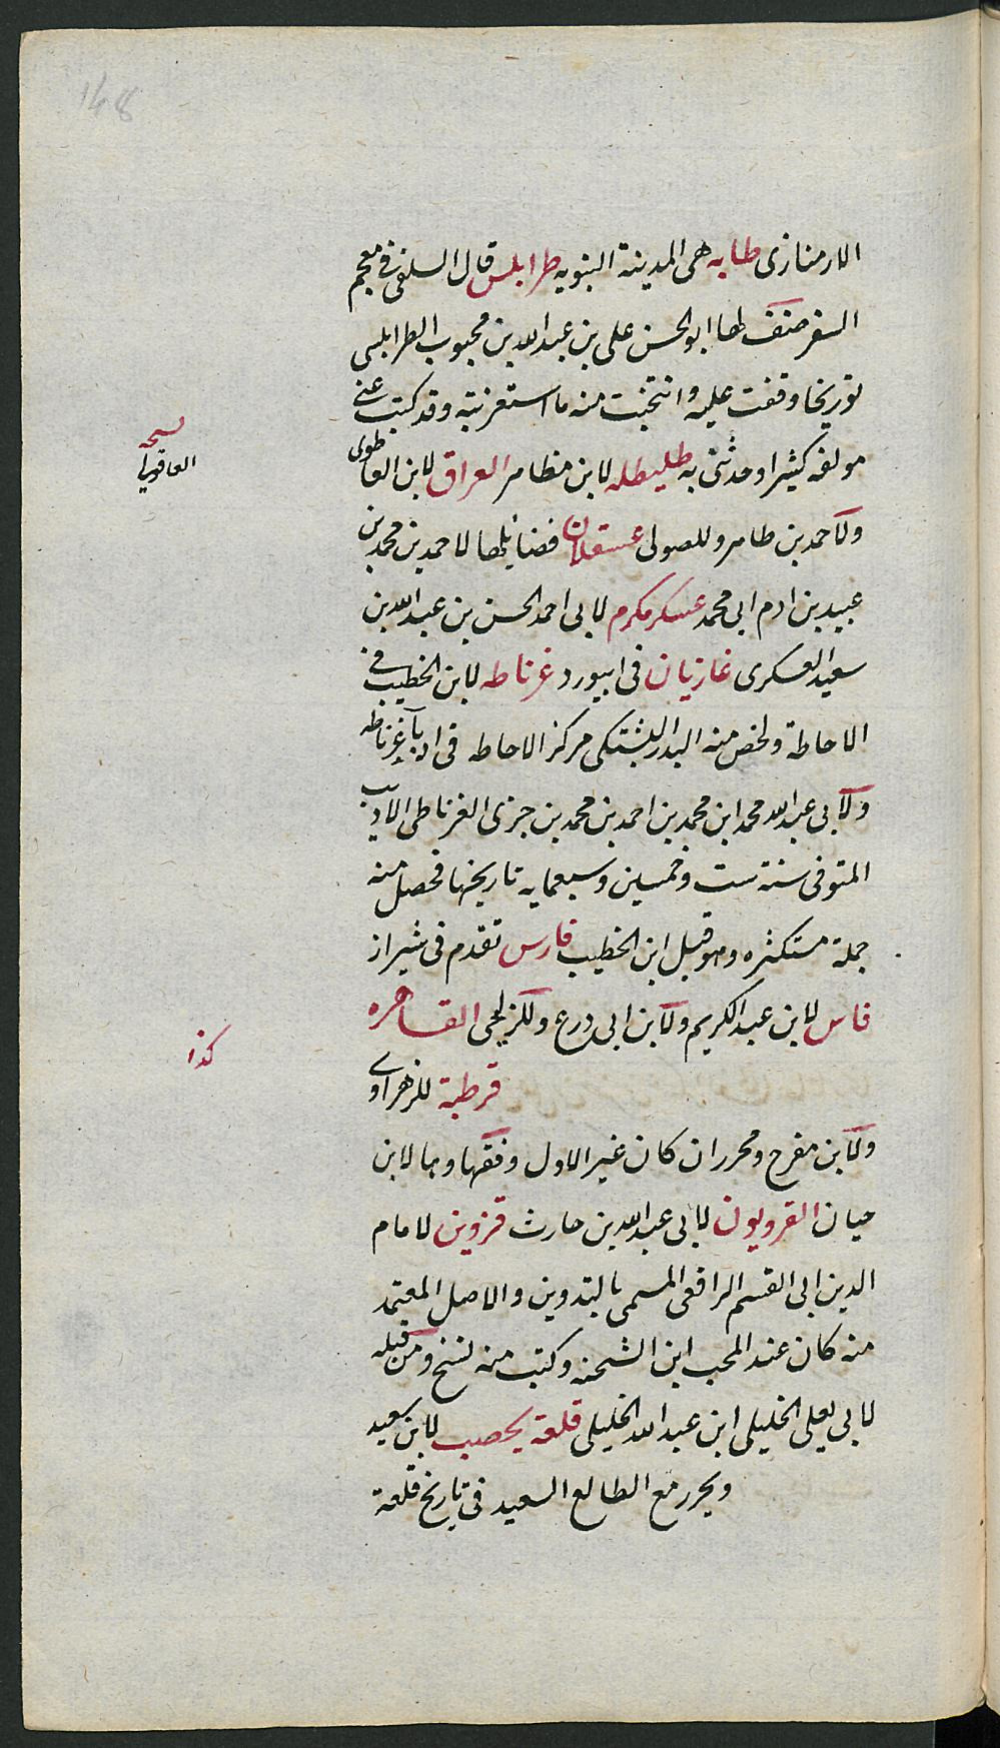 148
الارمنازى طابه هى المدينة النبويه طرابلس قال السلفى فى معجم
السفر صنف لها ابو الحسن على بن عبد الله بن محبوب الطرابلسى
توريخا وقفت عليه وانتخبت منه ما استغربته وقد كتب عنى
مولفه كثيرا وحدثنى به طليطله لابن مظاهر العراق لابن القاطوى
نسخه
العاقولى
ولاحمد بن طاهر وللصولى عسقلان فضايلها لاحمد بن محمد بن
عبيد بن ادم ابى محمد عسكر مكرم لابى احمد الحسن بن عبد الله بن
سعيد العسكرى غازيان فى ابيورد غرناطه لابن الخطيب فى
الاحاطة ولخص منه البدر البشتكى مركز الاحاطه فى ادبآ غرناطه
ولابى عبد الله محمد ابن محمد بن احمد بن محمد بن جزى الغرناطى الاديب
المتوفى سنة ست وخمسين وسبعمايه تاريخها فحصل منه
جملة مستكثره وهو قبل ابن الخطيب فارس تقدم فى شيراز
فاس لابن عبد الكريم ولابن ابى درع ولكزلجى القاهره
كذا
قرطبة للزهراوى
ولابن مفرح ومحرر ان كان غير الاول وفقهاوها لابن
حيان القرويون لابى عبد الله بن حارث قزوين لامام
الدين ابى القسم الرافعى المسمى بالتدوين والاصل المعتمد
منه كان عند المحب ابن الشحنه وكتب منه نسخ ومن قبله
لابى يعلى الخليلى ابن عبد الله الخليلى قلعة يحصب لابن سعيد
ويحرر مع الطالع السعيد فى تاريخ قلعة